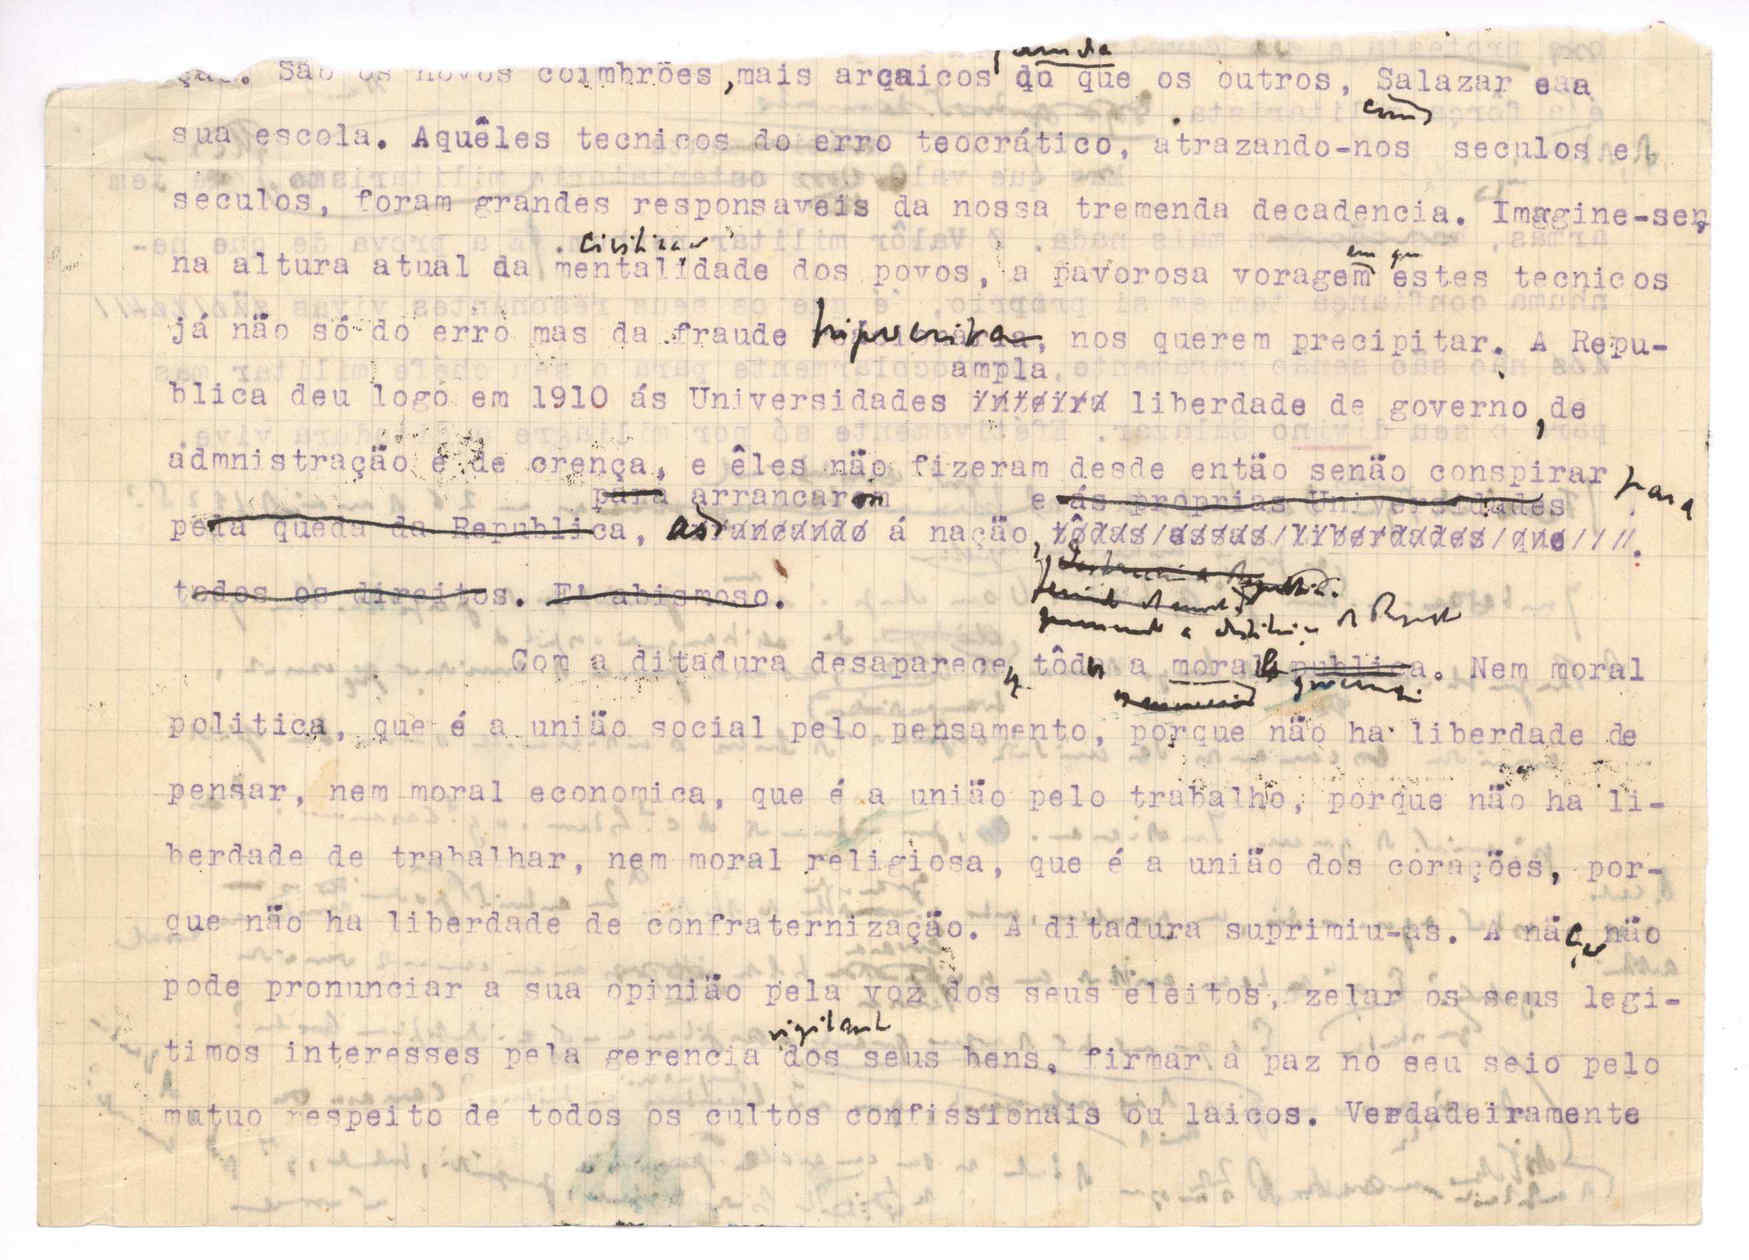 ainda
ção. São os novos coimbrões, mais arcaicos do que os outros, Salazar e a
com
sua escola. Aquêles tecnicos do erro teocrático, atrazando-nos seculos e
seculos, foram grandes responsaveis da nossa tremenda decadencia. Imagine-se,
civilizada em que
na altura atual da mentalidade dos povos, a pavorosa voragem estes tecnicos
já não só do erro mas da fraude hipocrita, nos querem precipitar. A Repu-
ampla
blica deu logo em 1910 ás Universidades inteira liberdade de governo, de
admnistração e de crença, e êles não fizeram desde então senão conspirar para
para arrancarem e ás proprias Universidades
pela queda da Republica, arrancando á nação, tôdas essas liberdades que
todos os direitos. E' abismoso.
Com a ditadura desaparece tôda a moral publica. Nem moral
politica, que é a união social pelo pensamento, porque não ha liberdade de
pensar, nem moral economica, que é a união pelo trabalho, porque não ha li-
berdade de trabalhar, nem moral religiosa, que é a união dos corações, por-
que não ha liberdade de confraternização. A ditadura suprimiu-as. A nação não
pode pronunciar a sua opinião pela voz dos seus eleitos, zelar os seus legi-
vigilante
timos interesses pela gerencia dos seus bens, firmar a paz no seu seio pelo
mutuo respeito de todos os cultos confissionais ou laicos. Verdadeiramente